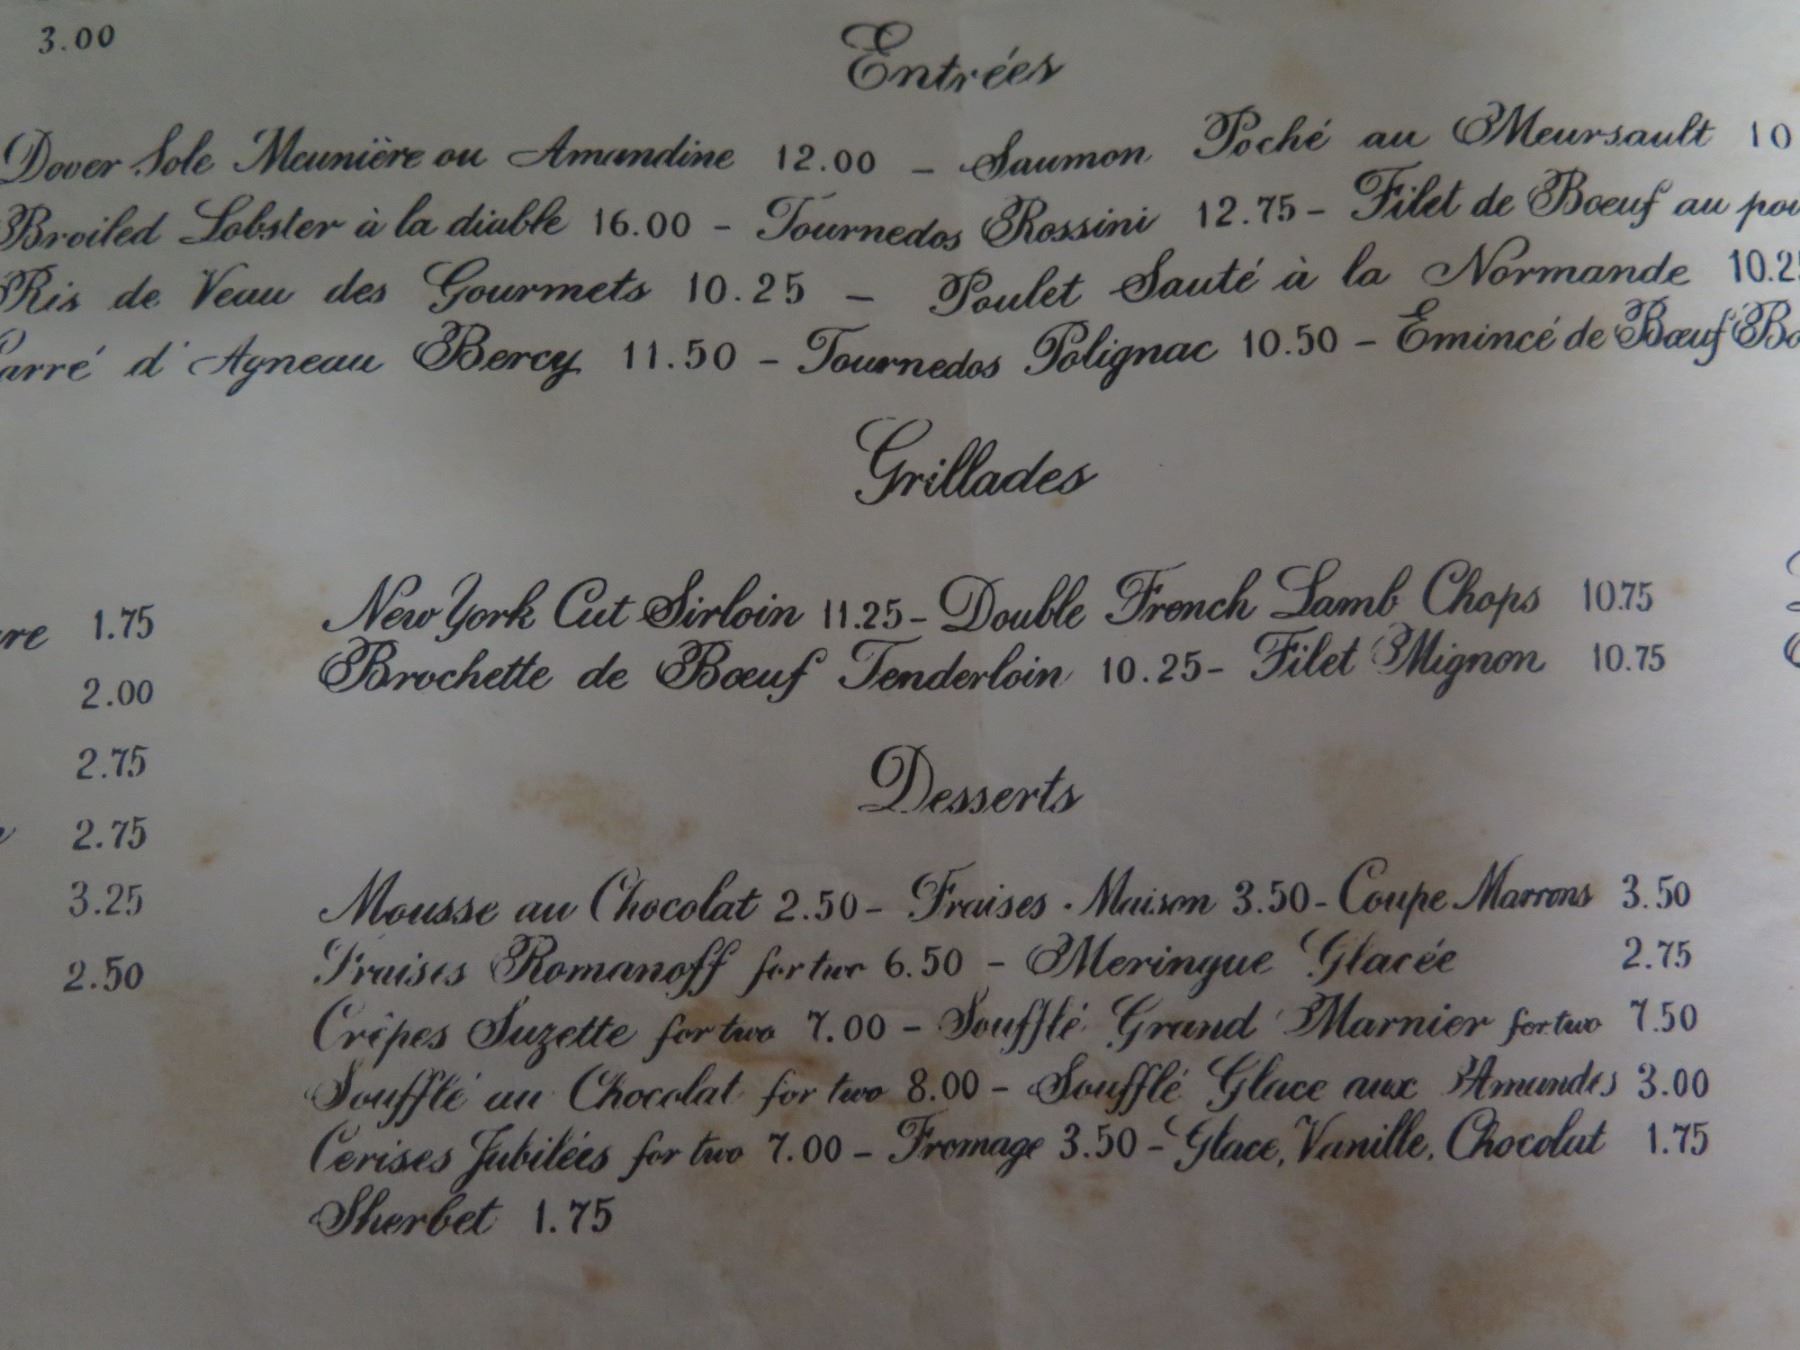 3.00
Entrées
Dover Sole Meunière ou Amandine 12.00 – Saumon Poché au Meursault 10
Broiled Lobster à la diable 16.00 – Tournedos Rossini 12.75 – Filet de Bœuf au poi
Ris de Veau des Gourmets 10.25 – Poulet Sauté à la Normande 10.25
arré d'Agneau Bercy 11.50 – Tournedos Polignac 10.50 – Emincé de Bœuf Bo
Grillades
re 1.75
2.00
2.75
2.75
3.25
2.50
New York Cut Sirloin 11.25 – Double French Lamb Chops 10.75
Brochette de Bœuf Tenderloin 10.25 – Filet Mignon 10.75
Desserts
Mousse au Chocolat 2.50 – Fraises Maison 3.50 – Coupe Marrons 3.50
Fraises Romanoff for two 6.50 – Meringue Glacée 2.75
Crêpes Suzette for two 7.00 – Soufflé Grand Marnier for two 7.50
Soufflé au Chocolat for two 8.00 – Soufflé Glace aux Amandes 3.00
Cerises Jubilées for two 7.00 – Fromage 3.50 – Glace, Vanille, Chocolat 1.75
Sherbet 1.75